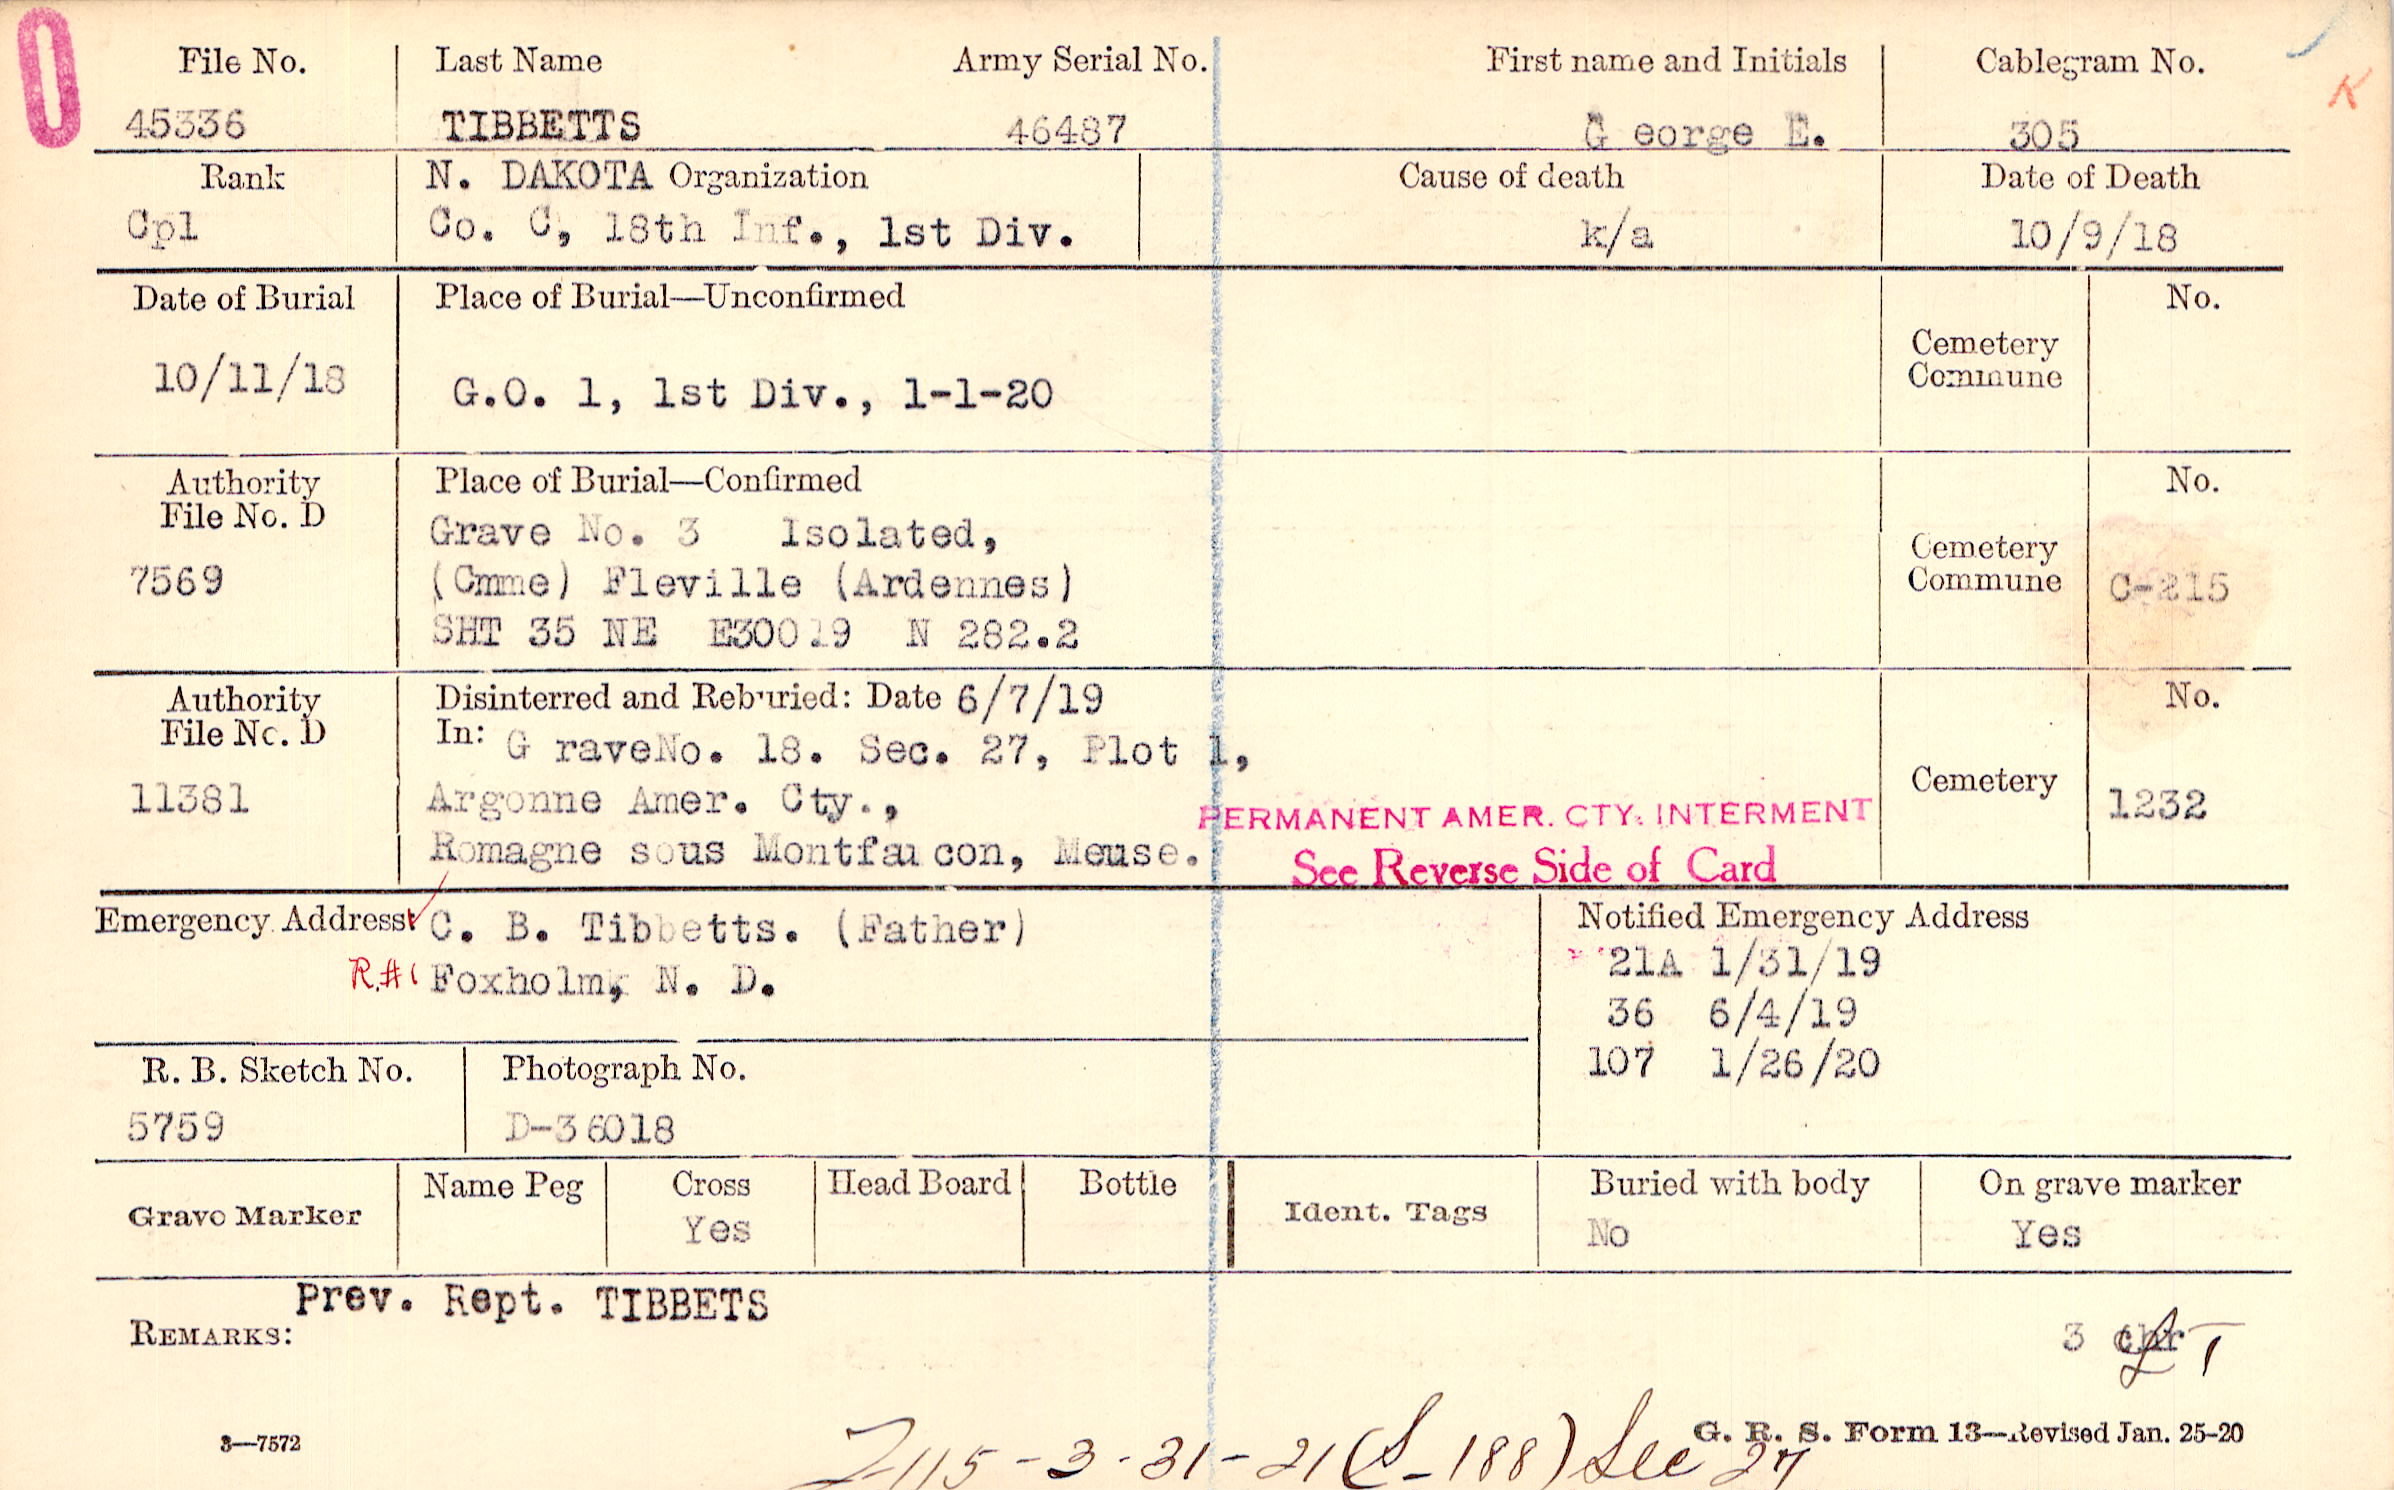 0
K
File No. Last Name Army Serial No. First name and Initials Cablegram No.
45336 TIBBETTS 46487 G eorge E. 305
Rank N. DAKOTA Organization Cause of death Date of Death
Cpl Co. C, 18th Inf., 1st Div. k/a 10/9/18
Date of Burial Place of Burial—Unconfirmed No.
Cemetery
Commune
10/11/18 G.O. 1, 1st Div., 1-1-20
Authority Place of Burial—Confirmed No.
File No. D Grave No. 3 Isolated,
Cemetery
7569 (Cmme) Fleville (Ardennes) Commune C-215
SHT 35 NE E300.19 N 282.2
Authority Disinterred and Reburied: Date 6/7/19 No.
File No. D In: G raveNo. 18. Sec. 27, Plot 1,
11381 Argonne Amer. Cty., Cemetery 1232
PERMANENT AMER. CTY. INTERMENT
Romagne sous Montfaucon, Meuse.
See Reverse Side of Card
Emergency Address: C. B. Tibbetts. (Father) Notified Emergency Address
R.#1 Foxholm, N. D. 21A 1/31/19
36 6/4/19
107 1/26/20
R. B. Sketch No. Photograph No.
5759 D-36018
Grave Marker Name Peg Cross Head Board Bottle Ident. Tags Buried with body On grave marker
Yes No Yes
Prev. Rept. TIBBETS
REMARKS: 3 chr
3—7572 G. R. S. Form 13—Revised Jan. 25-20
115-3-31-21 (S-188) Sec 27